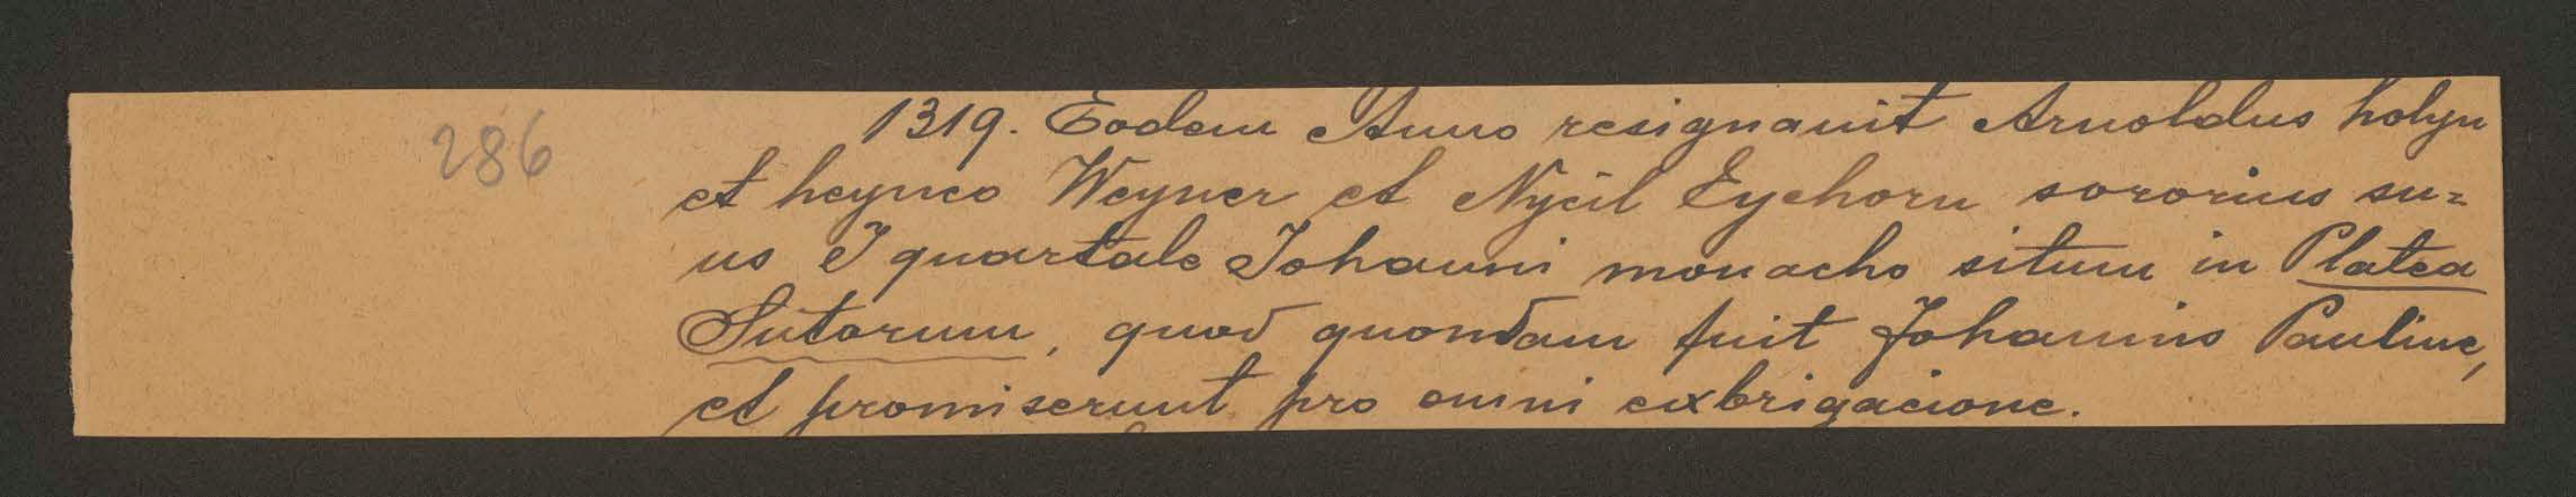 286
1319. Eodem Anno resignauit Arnoldus holyn
et heynco Weyner et Nycil Eychorn sororius su=
us I quartale Johanni monacho situm in Platea
Sutorum, quod quondam fuit Johannis Pauline,
et promiserunt pro omni exbrigacione.